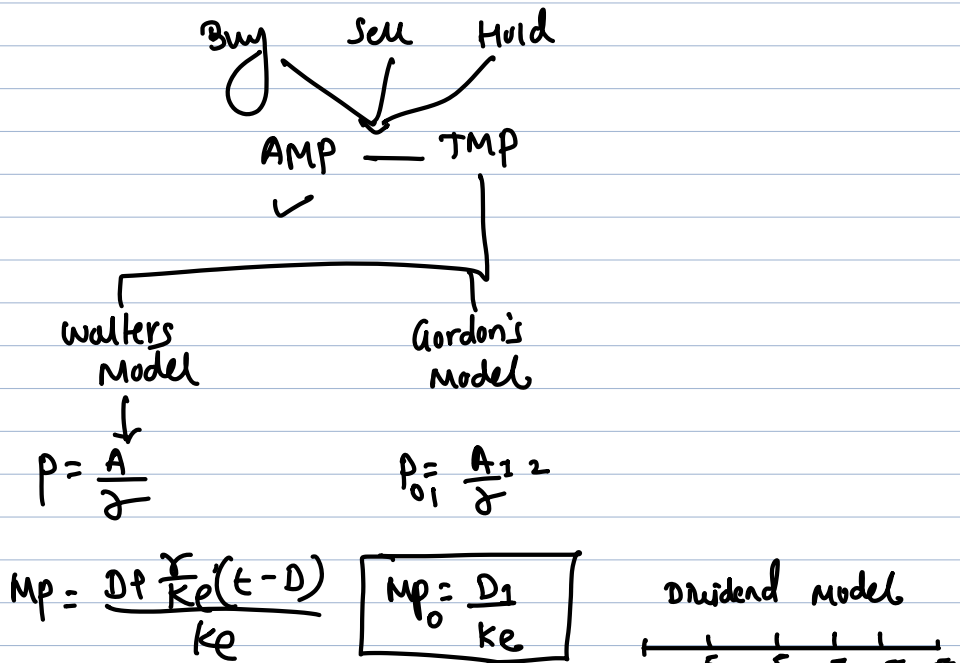 Buy Sell Hold
AMP — TMP
✓
Walters Model
Gordon's Model
P = A/r
P0,1 = A1 2/r
MP = D+ r/Ke (E-D) / Ke
MP0 = D1/Ke
Dividend Model
5 5